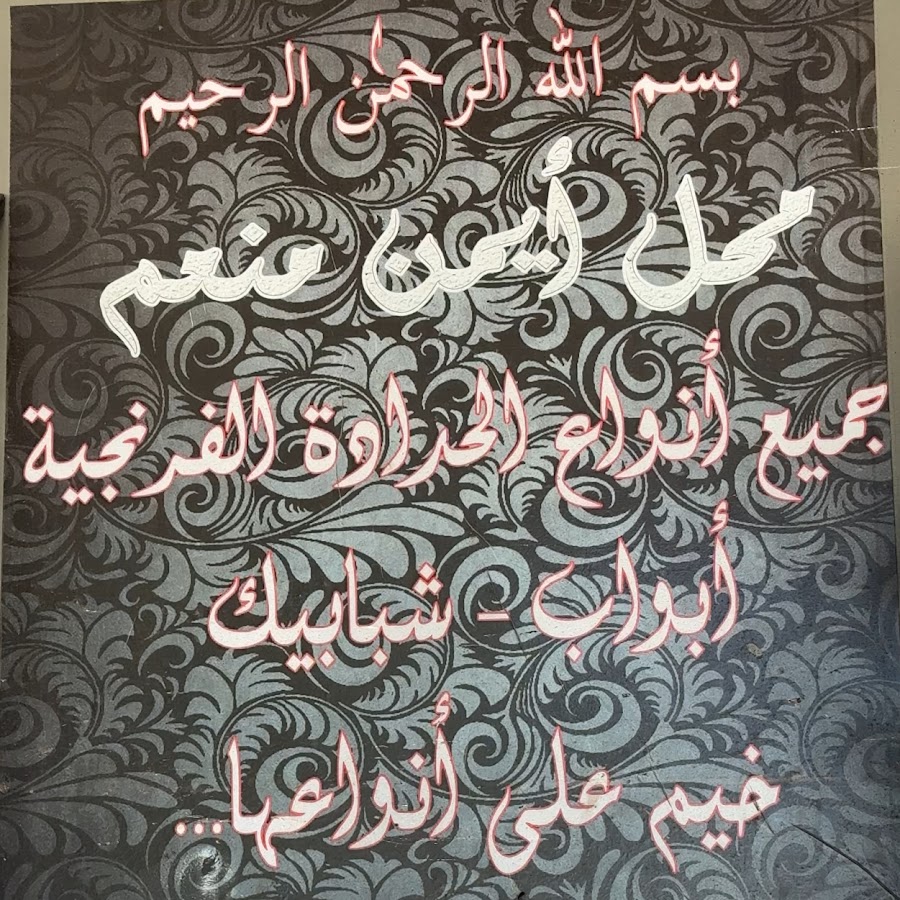 بسم الله الرحمن الرحيم
محل أيمن منعم
جميع أنواع الحدادة الفرنجية
أبواب - شبابيك
خيم على أنواعها...